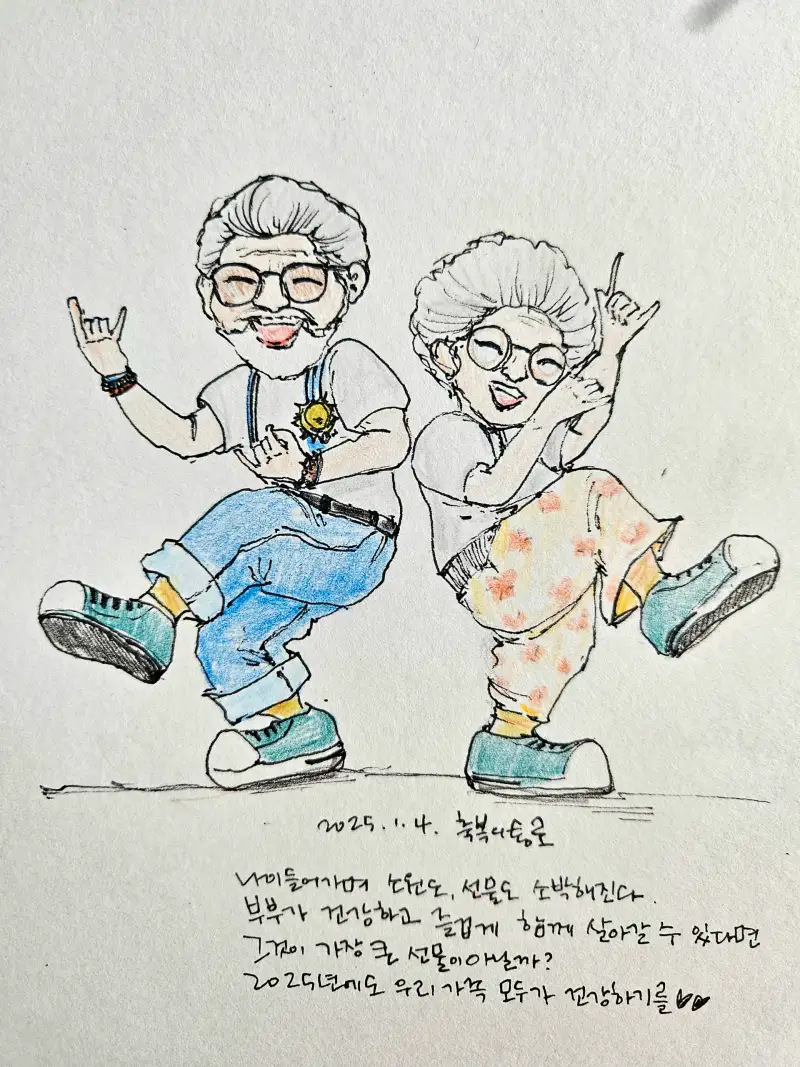 2025.1.4. 축복의통로
나이들어가며 소원도, 선물도 소박해진다.
부부가 건강하고 즐겁게 함께 살아갈 수 있다면
그것이 가장 큰 선물이아닐까?
2025년에도 우리가족 모두가 건강하기를